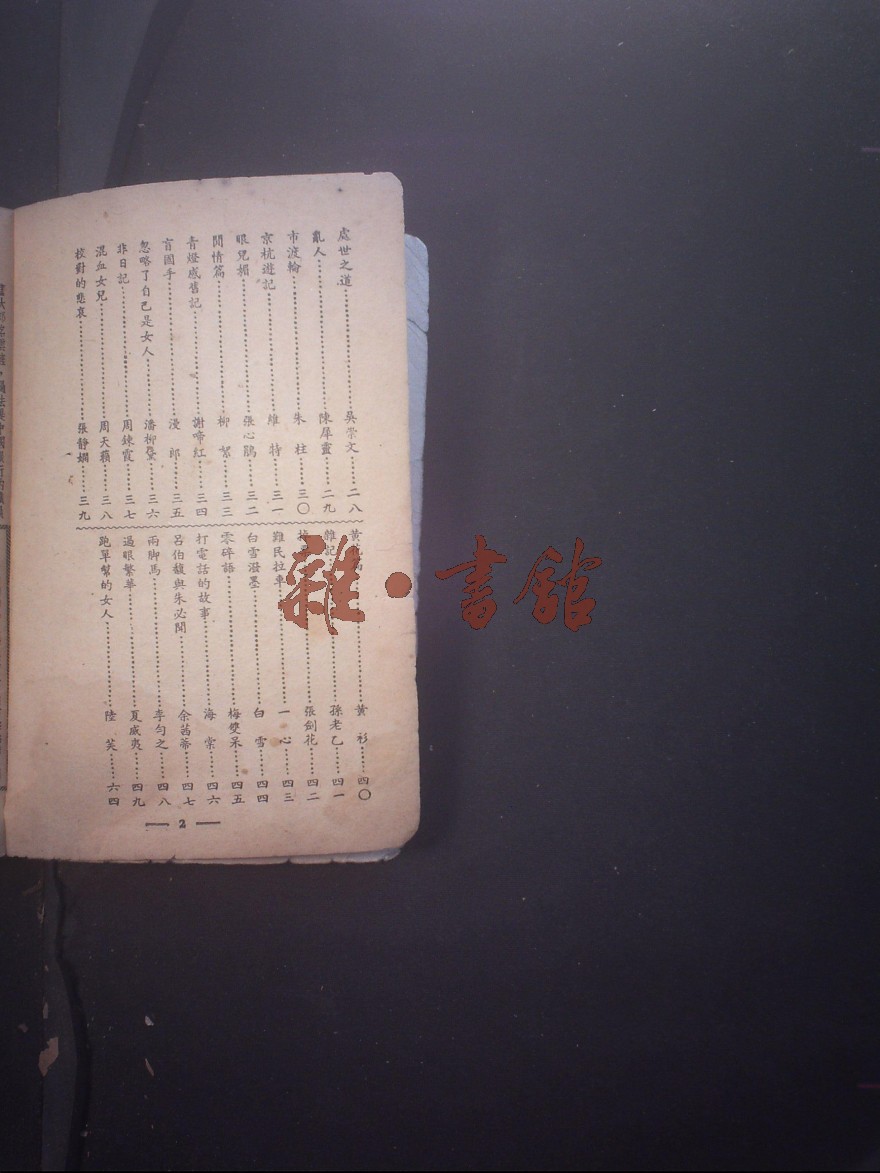 處世之道 吳崇文 二八
亂人 陳犀靈 二九
市渡輪 朱柱 三〇
京杭遊記 維特 三一
眼兒媚 張心鵑 三二
閒情篇 柳絮 三三
青燈感舊記 謝啼紅 三四
盲國手 漫郎 三五
忽略了自己是女人 潘柳黛 三六
非日記 周鍊霞 三七
混血女兒 周天籟 三八
校對的悲哀 張靜嫻 三九
黃 黃衫 四〇
雜記 孫老乙 四一
張劍花 四二
難民拉車 一心 四三
白雪潑墨 白雪 四四
零碎語 梅雙呆 四五
打電話的故事 海棠 四六
呂伯馥與朱必聞 余茜蒂 四七
兩脚馬 李勻之 四八
過眼繁華 夏威夷 四九
跑單幫的女人 陸芙 六四
2
雜·書館